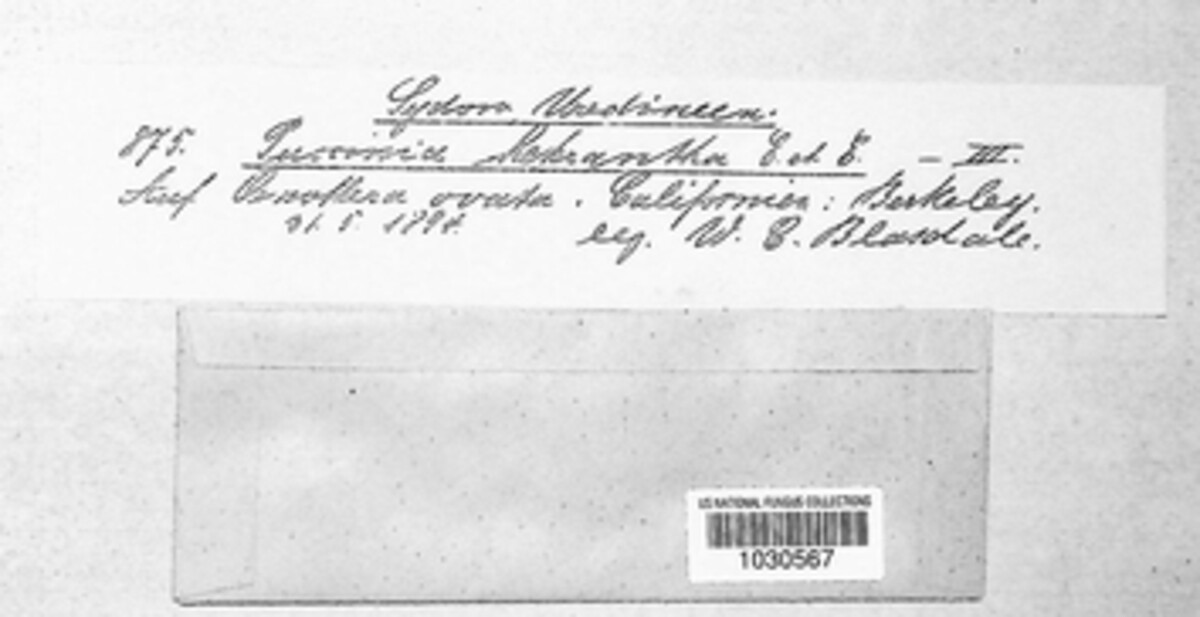 Sydow, Uredineen.
875. Puccinia heterantha E. et E. — III.
Auf Oenothera ovata. Californien: Berkeley.
5. 1894. leg. W. C. Blasdale.
US NATIONAL FUNGUS COLLECTIONS
1030567